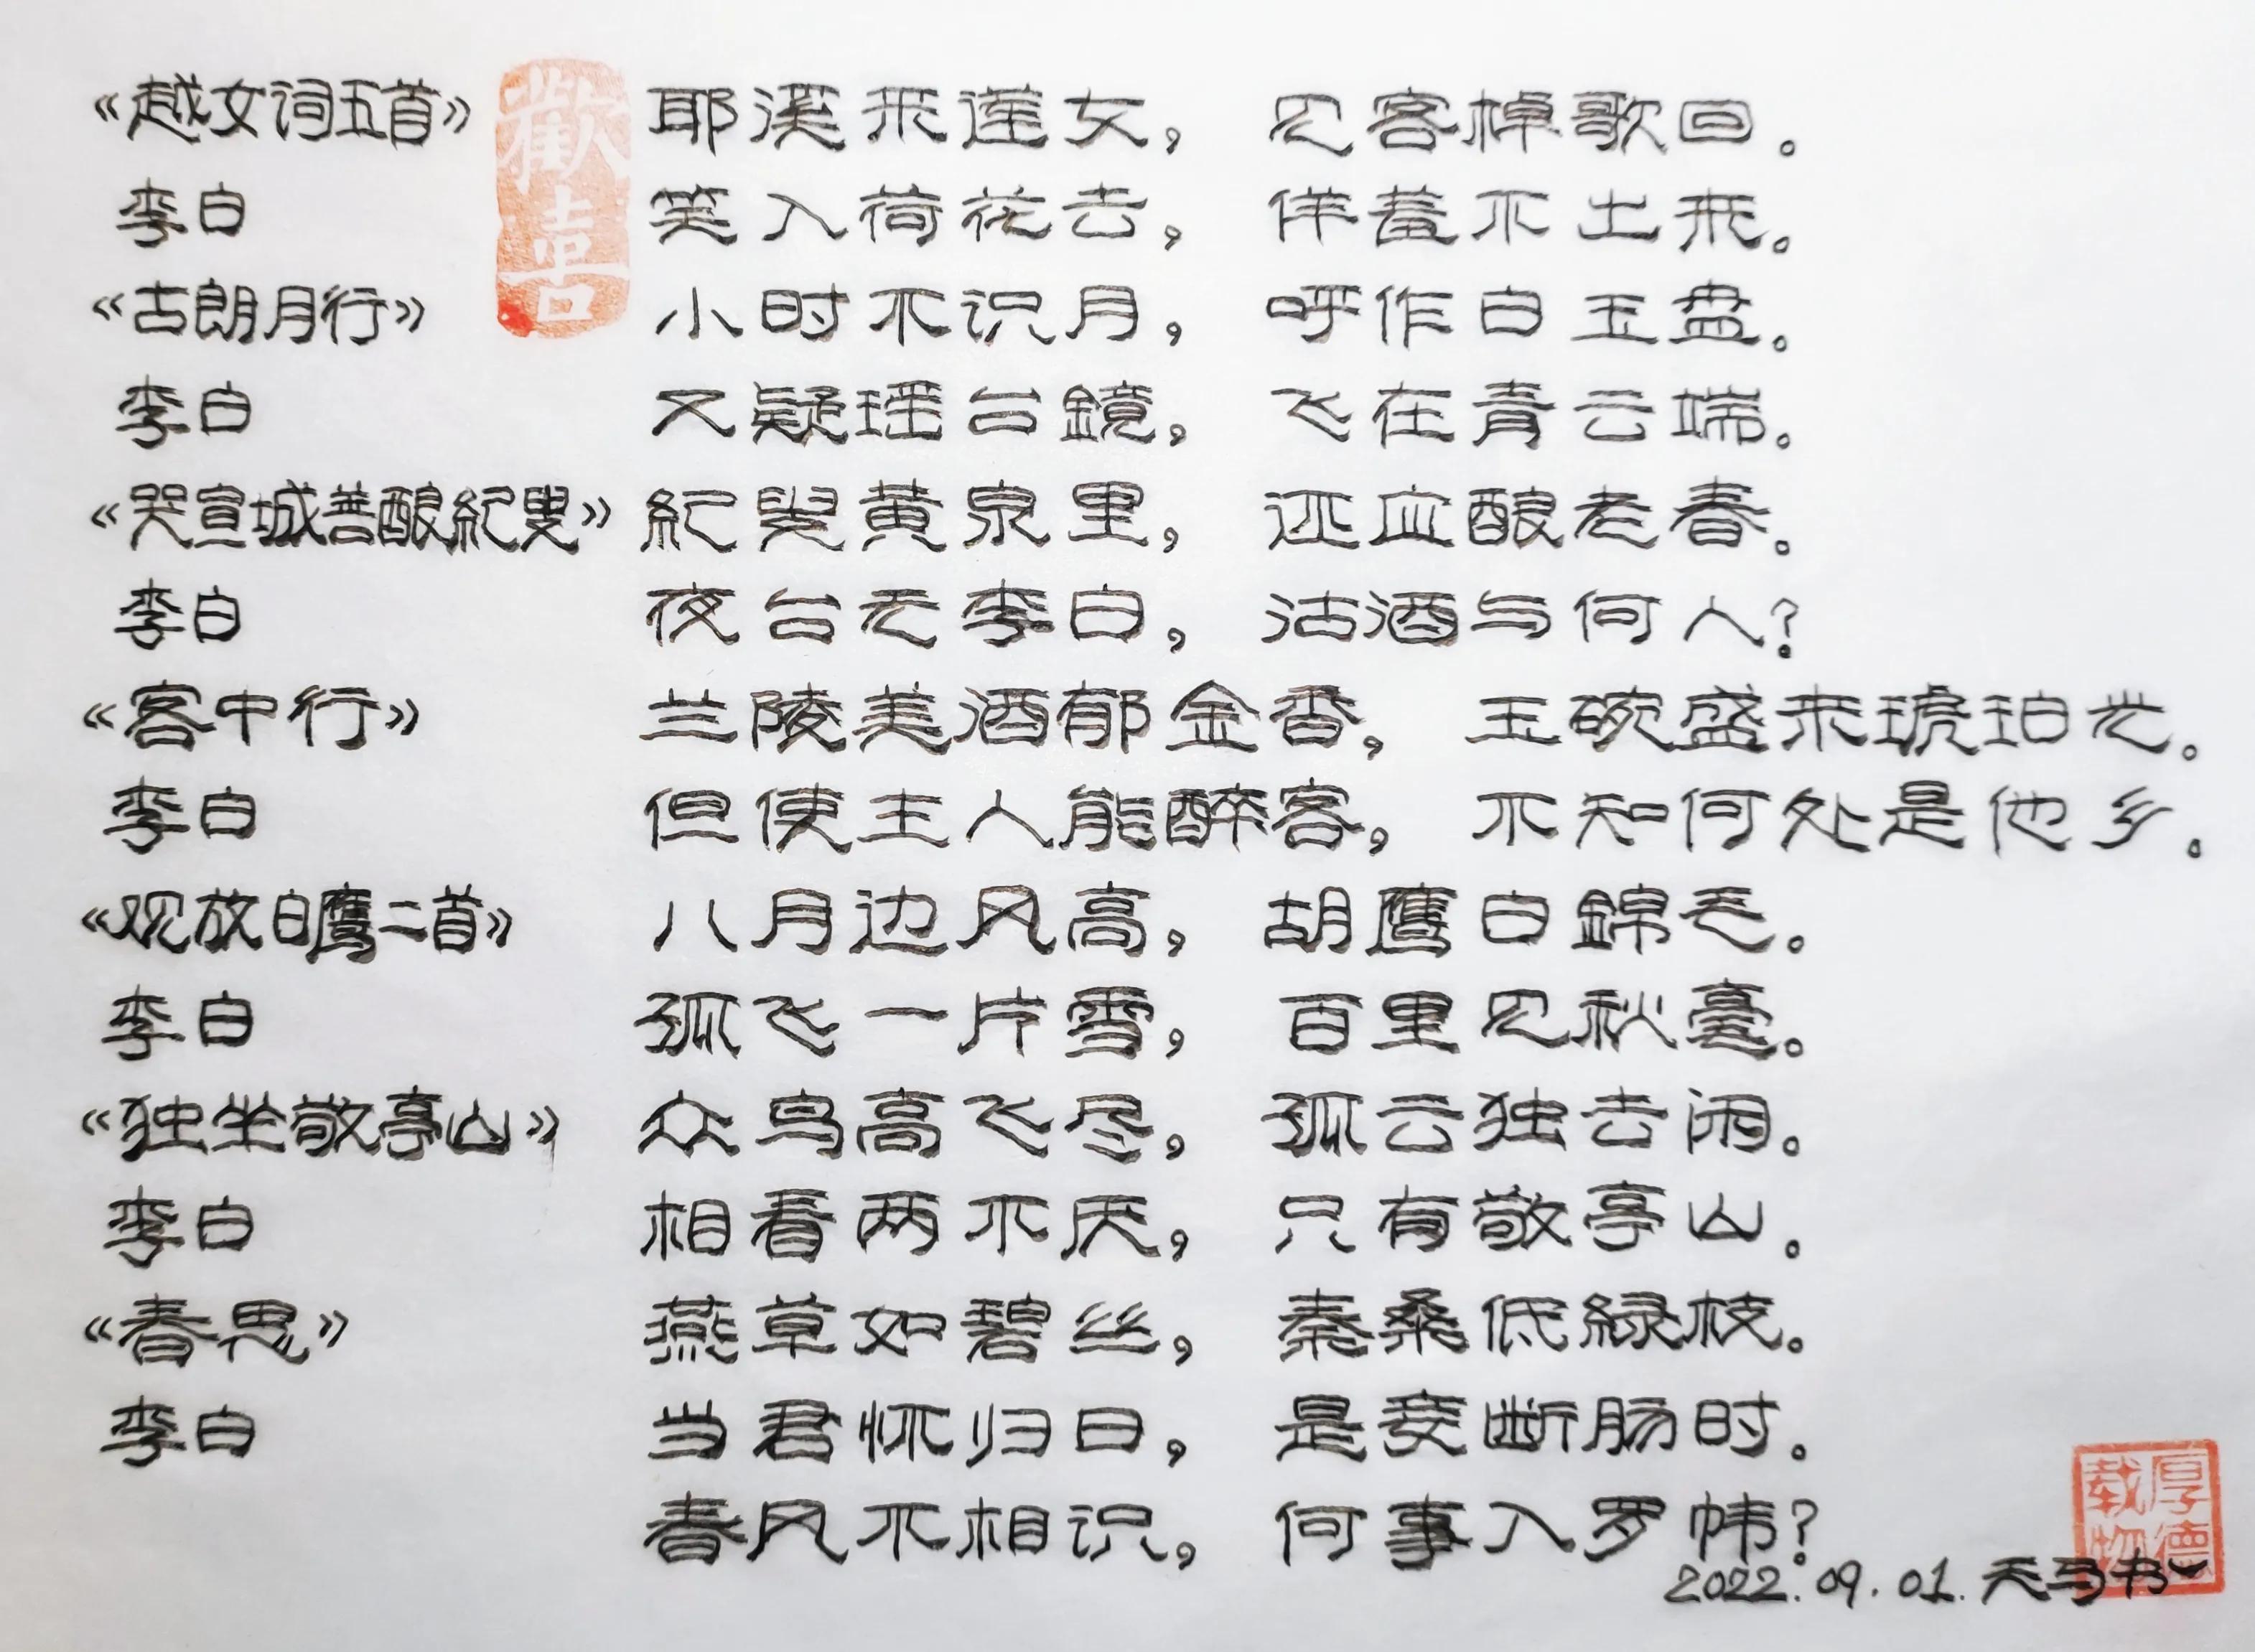 《越女词五首》 耶溪采莲女， 见客棹歌回。
李白 笑入荷花去， 佯羞不出来。
《古朗月行》 小时不识月， 呼作白玉盘。
李白 又疑瑶台鏡， 飞在青云端。
《哭宣城善酿紀叟》 紀叟黄泉里， 还应酿老春。
李白 夜台无李白， 沽酒与何人？
《客中行》 兰陵美酒郁金香， 玉碗盛来琥珀光。
李白 但使主人能醉客， 不知何处是他乡。
《观放白鹰二首》 八月边风高， 胡鹰白錦毛。
李白 孤飞一片雪， 百里见秋毫。
《独坐敬亭山》 众鸟高飞尽， 孤云独去闲。
李白 相看两不厌， 只有敬亭山。
《春思》 燕草如碧丝， 秦桑低緑枝。
李白 当君怀归日， 是妾断肠时。
春风不相识， 何事入罗帏？
2022.09.01. 天 书
歡喜
厚德载物